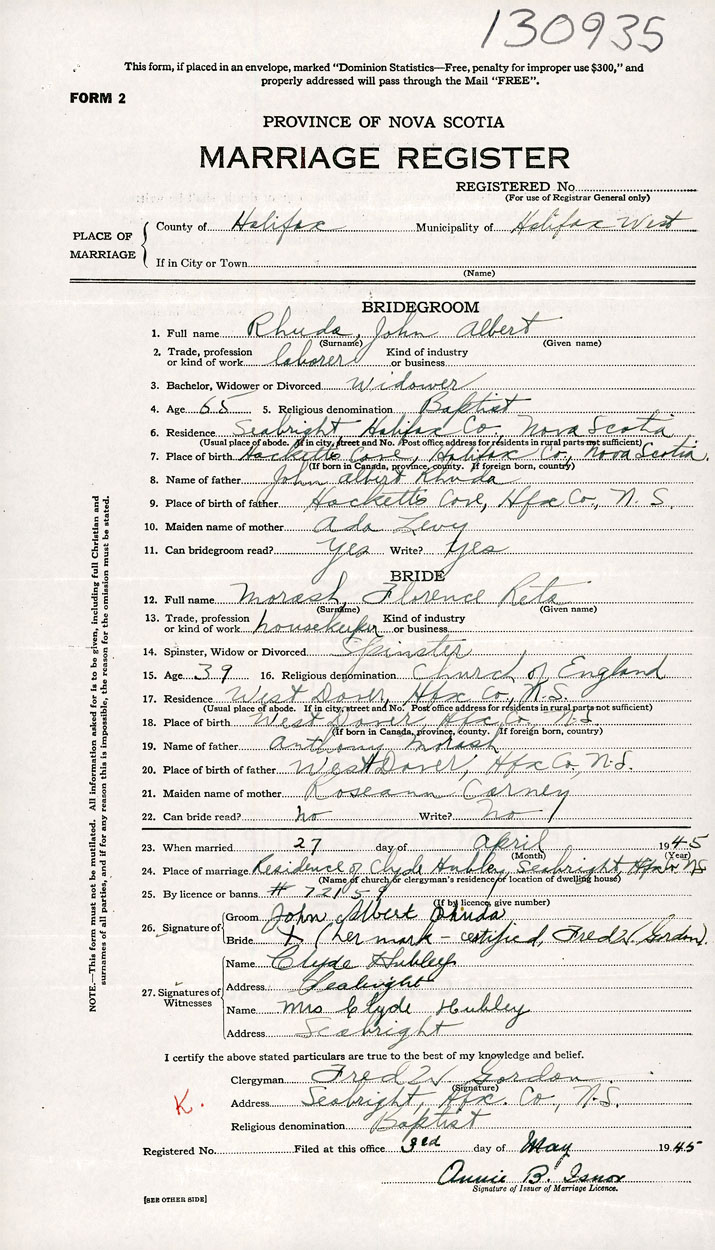 130935
This form, if placed in an envelope, marked "Dominion Statistics—Free, penalty for improper use $300," and
properly addressed will pass through the Mail "FREE".
FORM 2
PROVINCE OF NOVA SCOTIA
MARRIAGE REGISTER
REGISTERED No.
(For use of Registrar General only)
PLACE OF MARRIAGE
County of Halifax Municipality of Halifax West
If in City or Town
(Name)
BRIDEGROOM
1. Full name Rhuda, John Albert
(Surname) (Given name)
2. Trade, profession or kind of work laborer Kind of industry or business
3. Bachelor, Widower or Divorced Widower
4. Age 65 5. Religious denomination Baptist
6. Residence Seabright Halifax Co., Nova Scotia
(Usual place of abode. If in city, street and No. Post office address for residents in rural parts not sufficient)
7. Place of birth Hacketts Cove, Halifax Co., Nova Scotia.
(If born in Canada, province, county. If foreign born, country)
8. Name of father John Albert Rhuda
9. Place of birth of father Hacketts Cove, Hfx Co., N.S.
10. Maiden name of mother Ada Levy
11. Can bridegroom read? Yes Write? Yes
BRIDE
12. Full name Morash, Florence Reta
(Surname) (Given name)
13. Trade, profession or kind of work housekeeper Kind of industry or business
14. Spinster, Widow or Divorced Spinster
15. Age 39 16. Religious denomination Church of England
17. Residence West Dover, Hfx Co., N.S.
(Usual place of abode. If in city, street and No. Post office address for residents in rural parts not sufficient)
18. Place of birth West Dover, Hfx Co., N.S.
(If born in Canada, province, county. If foreign born, country)
19. Name of father Anthony Morash
20. Place of birth of father West Dover, Hfx Co., N.S.
21. Maiden name of mother Roseann Carney
22. Can bride read? no Write? no
23. When married 27 day of April 1945
(Month) (Year)
24. Place of marriage Residence of Clyde Hubley, Seabright, Hfx Co NS
(Name of church or clergyman's residence or location of dwelling house)
25. By licence or banns # 72159
(If by licence, give number)
26. Signature of
Groom John Albert Rhuda
Bride X (her mark - certified, Fred W. Gordon).
27. Signatures of Witnesses
Name Clyde Hubley
Address Seabright
Name Mrs Clyde Hubley
Address Seabright
I certify the above stated particulars are true to the best of my knowledge and belief.
Clergyman Fred W Gordon
(Signature)
Address Seabright, Hfx. Co., N.S.
Religious denomination Baptist
K.
Registered No. Filed at this office 3rd day of May 1945
Annie B. Isnor
Signature of Issuer of Marriage Licence.
[SEE OTHER SIDE]
NOTE.—This form must not be mutilated. All information asked for is to be given, including full Christian and
surnames of all parties, and if for any reason this is impossible, the reason for the omission must be stated.